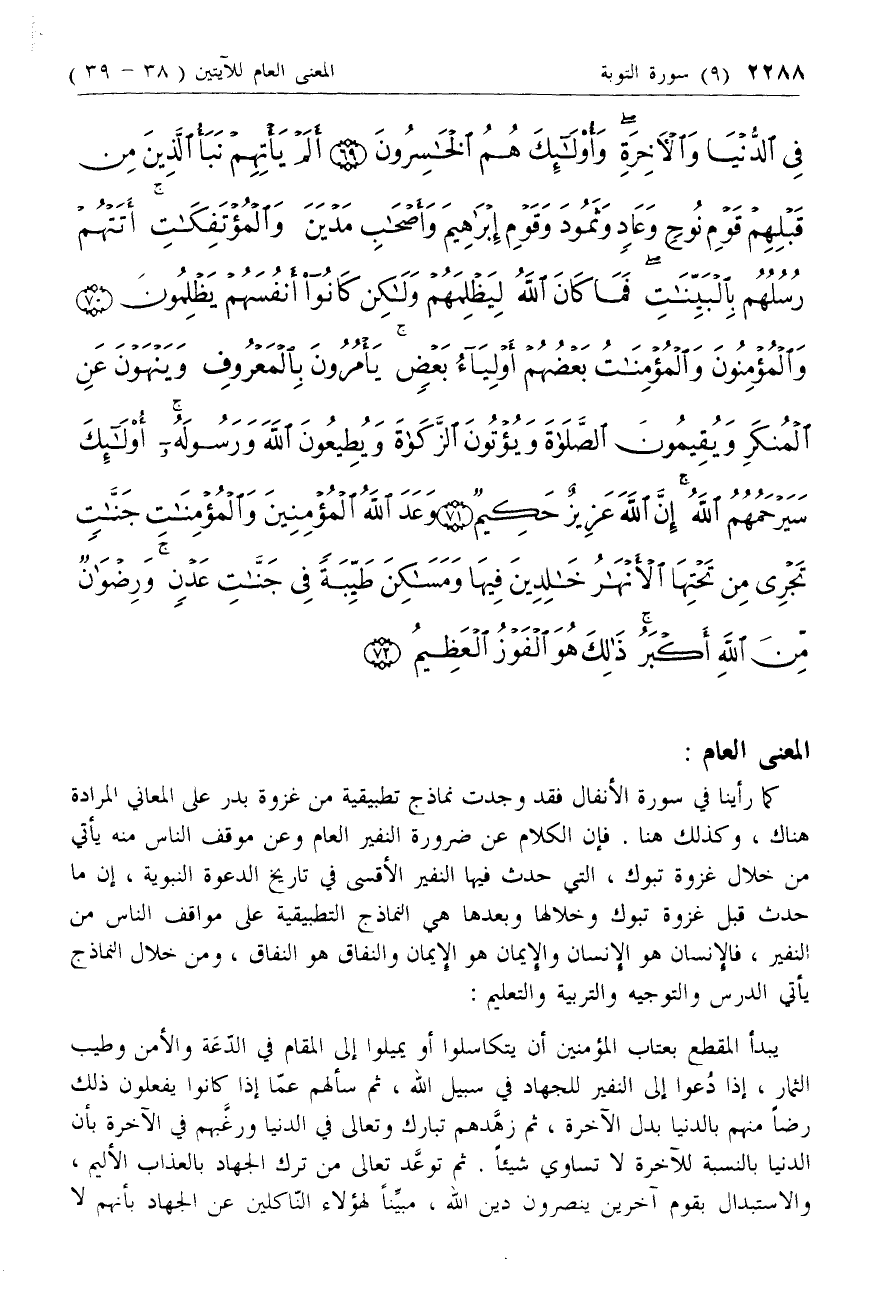 ٢٢٨٨ (٩) سورة التوبة المعنى العام للآيتين ( ٣٨ - ٣٩ )
فِي الدُّنْيَا وَالْآخِرَةِ ۖ وَأُولَٰئِكَ هُمُ الْخَاسِرُونَ ﴿٦٩﴾ أَلَمْ يَأْتِهِمْ نَبَأُ الَّذِينَ مِن
قَبْلِهِمْ قَوْمِ نُوحٍ وَعَادٍ وَثَمُودَ وَقَوْمِ إِبْرَاهِيمَ وَأَصْحَابِ مَدْيَنَ وَالْمُؤْتَفِكَاتِ ۚ أَتَتْهُمْ
رُسُلُهُم بِالْبَيِّنَاتِ ۖ فَمَا كَانَ اللَّهُ لِيَظْلِمَهُمْ وَلَٰكِن كَانُوا أَنفُسَهُمْ يَظْلِمُونَ ﴿٧٠﴾
وَالْمُؤْمِنُونَ وَالْمُؤْمِنَاتُ بَعْضُهُمْ أَوْلِيَاءُ بَعْضٍ ۚ يَأْمُرُونَ بِالْمَعْرُوفِ وَيَنْهَوْنَ عَنِ
الْمُنكَرِ وَيُقِيمُونَ الصَّلَوٰةَ وَيُؤْتُونَ الزَّكَوٰةَ وَيُطِيعُونَ اللَّهَ وَرَسُولَهُ ۚ أُولَٰئِكَ
سَيَرْحَمُهُمُ اللَّهُ ۗ إِنَّ اللَّهَ عَزِيزٌ حَكِيمٌ ﴿٧١﴾ وَعَدَ اللَّهُ الْمُؤْمِنِينَ وَالْمُؤْمِنَاتِ جَنَّاتٍ
تَجْرِي مِن تَحْتِهَا الْأَنْهَارُ خَالِدِينَ فِيهَا وَمَسَاكِنَ طَيِّبَةً فِي جَنَّاتِ عَدْنٍ ۚ وَرِضْوَانٌ
مِّنَ اللَّهِ أَكْبَرُ ۚ ذَٰلِكَ هُوَ الْفَوْزُ الْعَظِيمُ ﴿٧٢﴾
المعنى العام :
كما رأينا في سورة الأنفال فقد وجدت نماذج تطبيقية من غزوة بدر على المعاني المرادة
هناك ، وكذلك هنا . فإن الكلام عن ضرورة النفير العام وعن موقف الناس منه يأتي
من خلال غزوة تبوك ، التي حدث فيها النفير الأقسى في تاريخ الدعوة النبوية ، إن ما
حدث قبل غزوة تبوك وخلالها وبعدها هي النماذج التطبيقية على مواقف الناس من
النفير ، فالإنسان هو الإنسان والإيمان هو الإيمان والنفاق هو النفاق ، ومن خلال النماذج
يأتي الدرس والتوجيه والتربية والتعليم :
يبدأ المقطع بعتاب المؤمنين أن يتكاسلوا أو يميلوا إلى المقام في الدّعَة والأمن وطيب
الثمار ، إذا دُعوا إلى النفير للجهاد في سبيل الله ، ثم سألهم عمّا إذا كانوا يفعلون ذلك
رضاً منهم بالدنيا بدل الآخرة ، ثم زهَّدهم تبارك وتعالى في الدنيا ورغَّبهم في الآخرة بأن
الدنيا بالنسبة للآخرة لا تساوي شيئاً . ثم توعَّد تعالى من ترك الجهاد بالعذاب الأليم ،
والاستبدال بقوم آخرين ينصرون دين الله ، مبيِّناً لهؤلاء النّاكلين عن الجهاد بأنهم لا